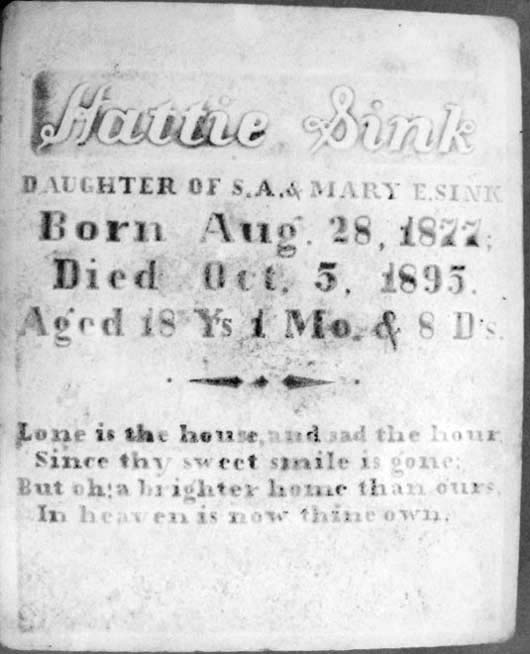 Hattie Sink
DAUGHTER OF S.A.& MARY E.SINK
Born Aug. 28, 1877;
Died Oct. 5, 1895.
Aged 18 Ys 1 Mo. & 8 D's.
Lone is the house, and sad the hour,
Since thy sweet smile is gone;
But oh! a brighter home than ours,
In heaven is now thine own.